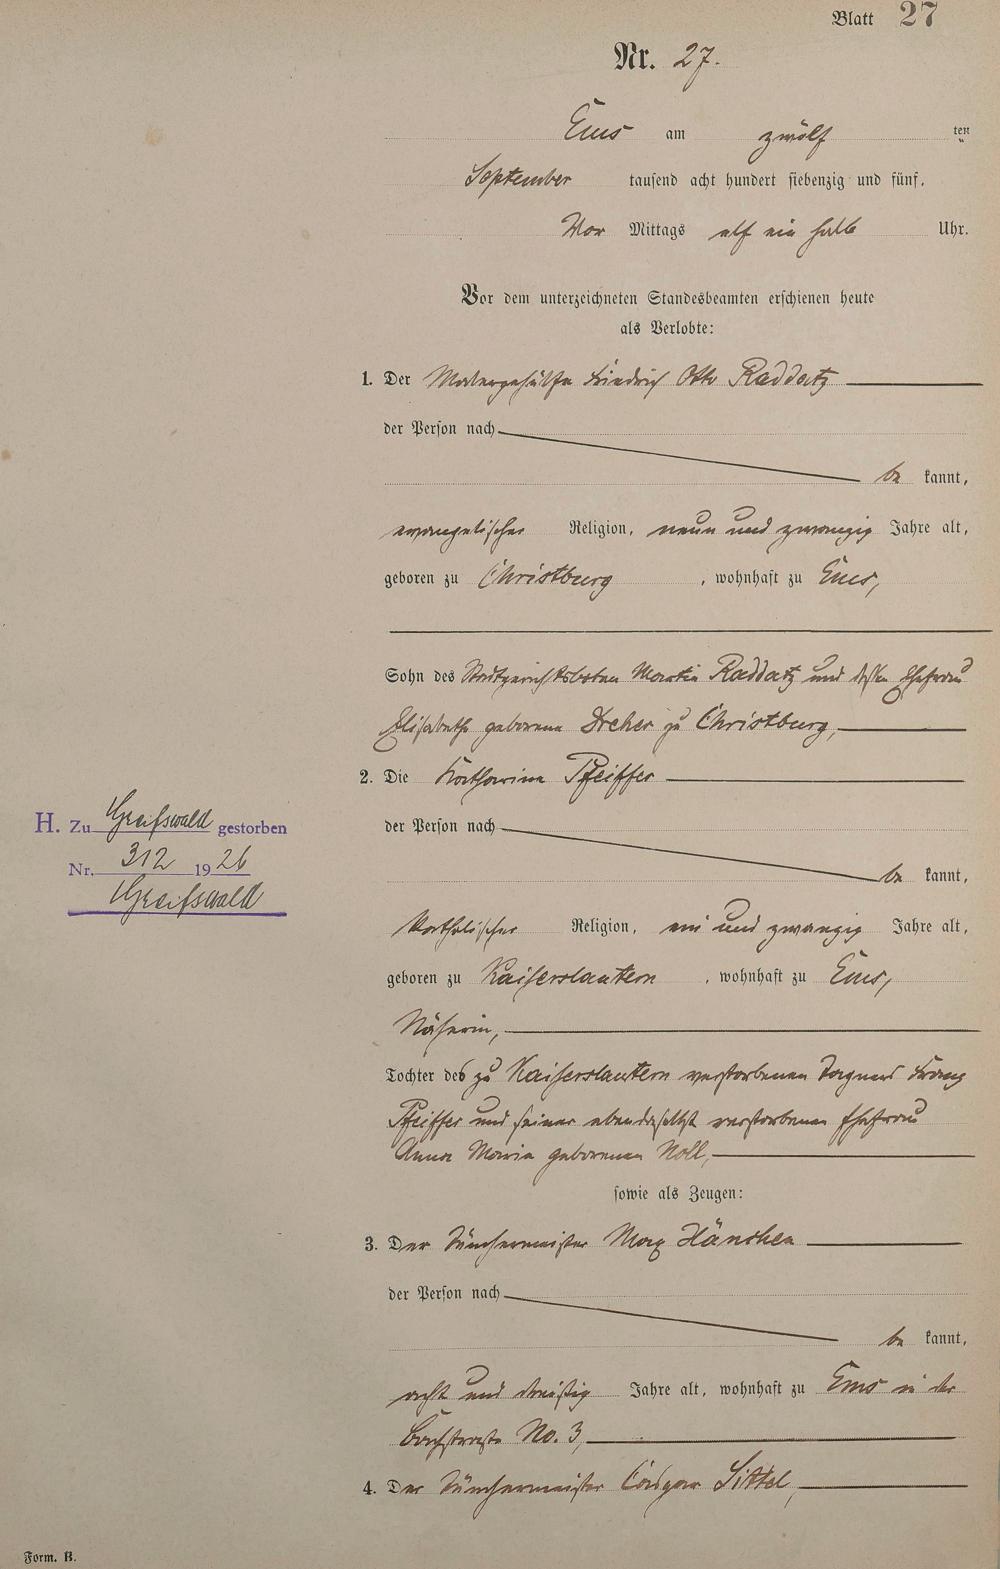 Blatt 27
Nr. 27.
Ems am zwölf ten
September tausend acht hundert siebenzig und fünf,
Vor Mittags elf ein halb Uhr.
Vor dem unterzeichneten Standesbeamten erschienen heute
als Verlobte:
1. Der Malergehülfe Friedrich Otto Raddatz
der Person nach
be kannt,
evangelischer Religion, neun und zwanzig Jahre alt,
geboren zu Christburg, wohnhaft zu Ems,
Sohn des Stadtgerichtsboten Martin Raddatz und dessen Ehefrau
Elisabeth geborene Dreher zu Christburg,
2. Die Katharina Pfeiffer
der Person nach
be kannt,
katholischer Religion, ein und zwanzig Jahre alt,
geboren zu Kaiserslautern, wohnhaft zu Ems,
Näherin,
Tochter des zu Kaiserslautern verstorbenen Tagners Franz
Pfeiffer und seiner ebendaselbst verstorbenen Ehefrau
Anna Maria geborenen Noll,
H. Zu Greifswald gestorben
Nr. 312 1926
Greifswald
sowie als Zeugen:
3. Der Tünchermeister Max Hänchen
der Person nach
be kannt,
acht und dreißig Jahre alt, wohnhaft zu Ems in der
No. 3,
4. Der Tünchermeister Sittel,
Form. B.